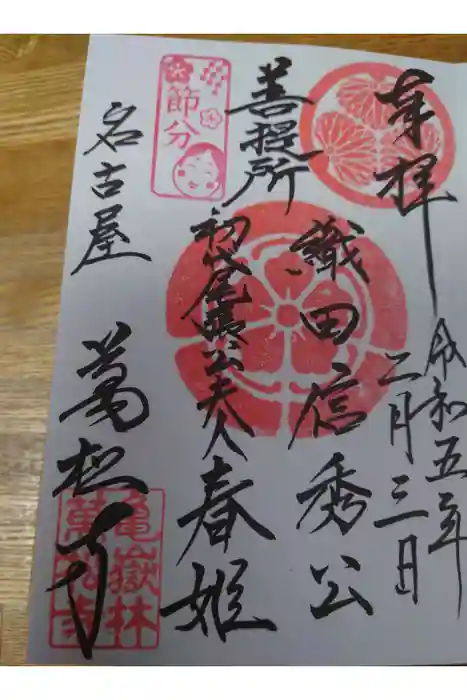 奉拝
令和五年
二月三日
織田信秀公
菩提所
初代尾張公夫人春姫
名古屋
萬松寺
節分
亀嶽林
萬松寺